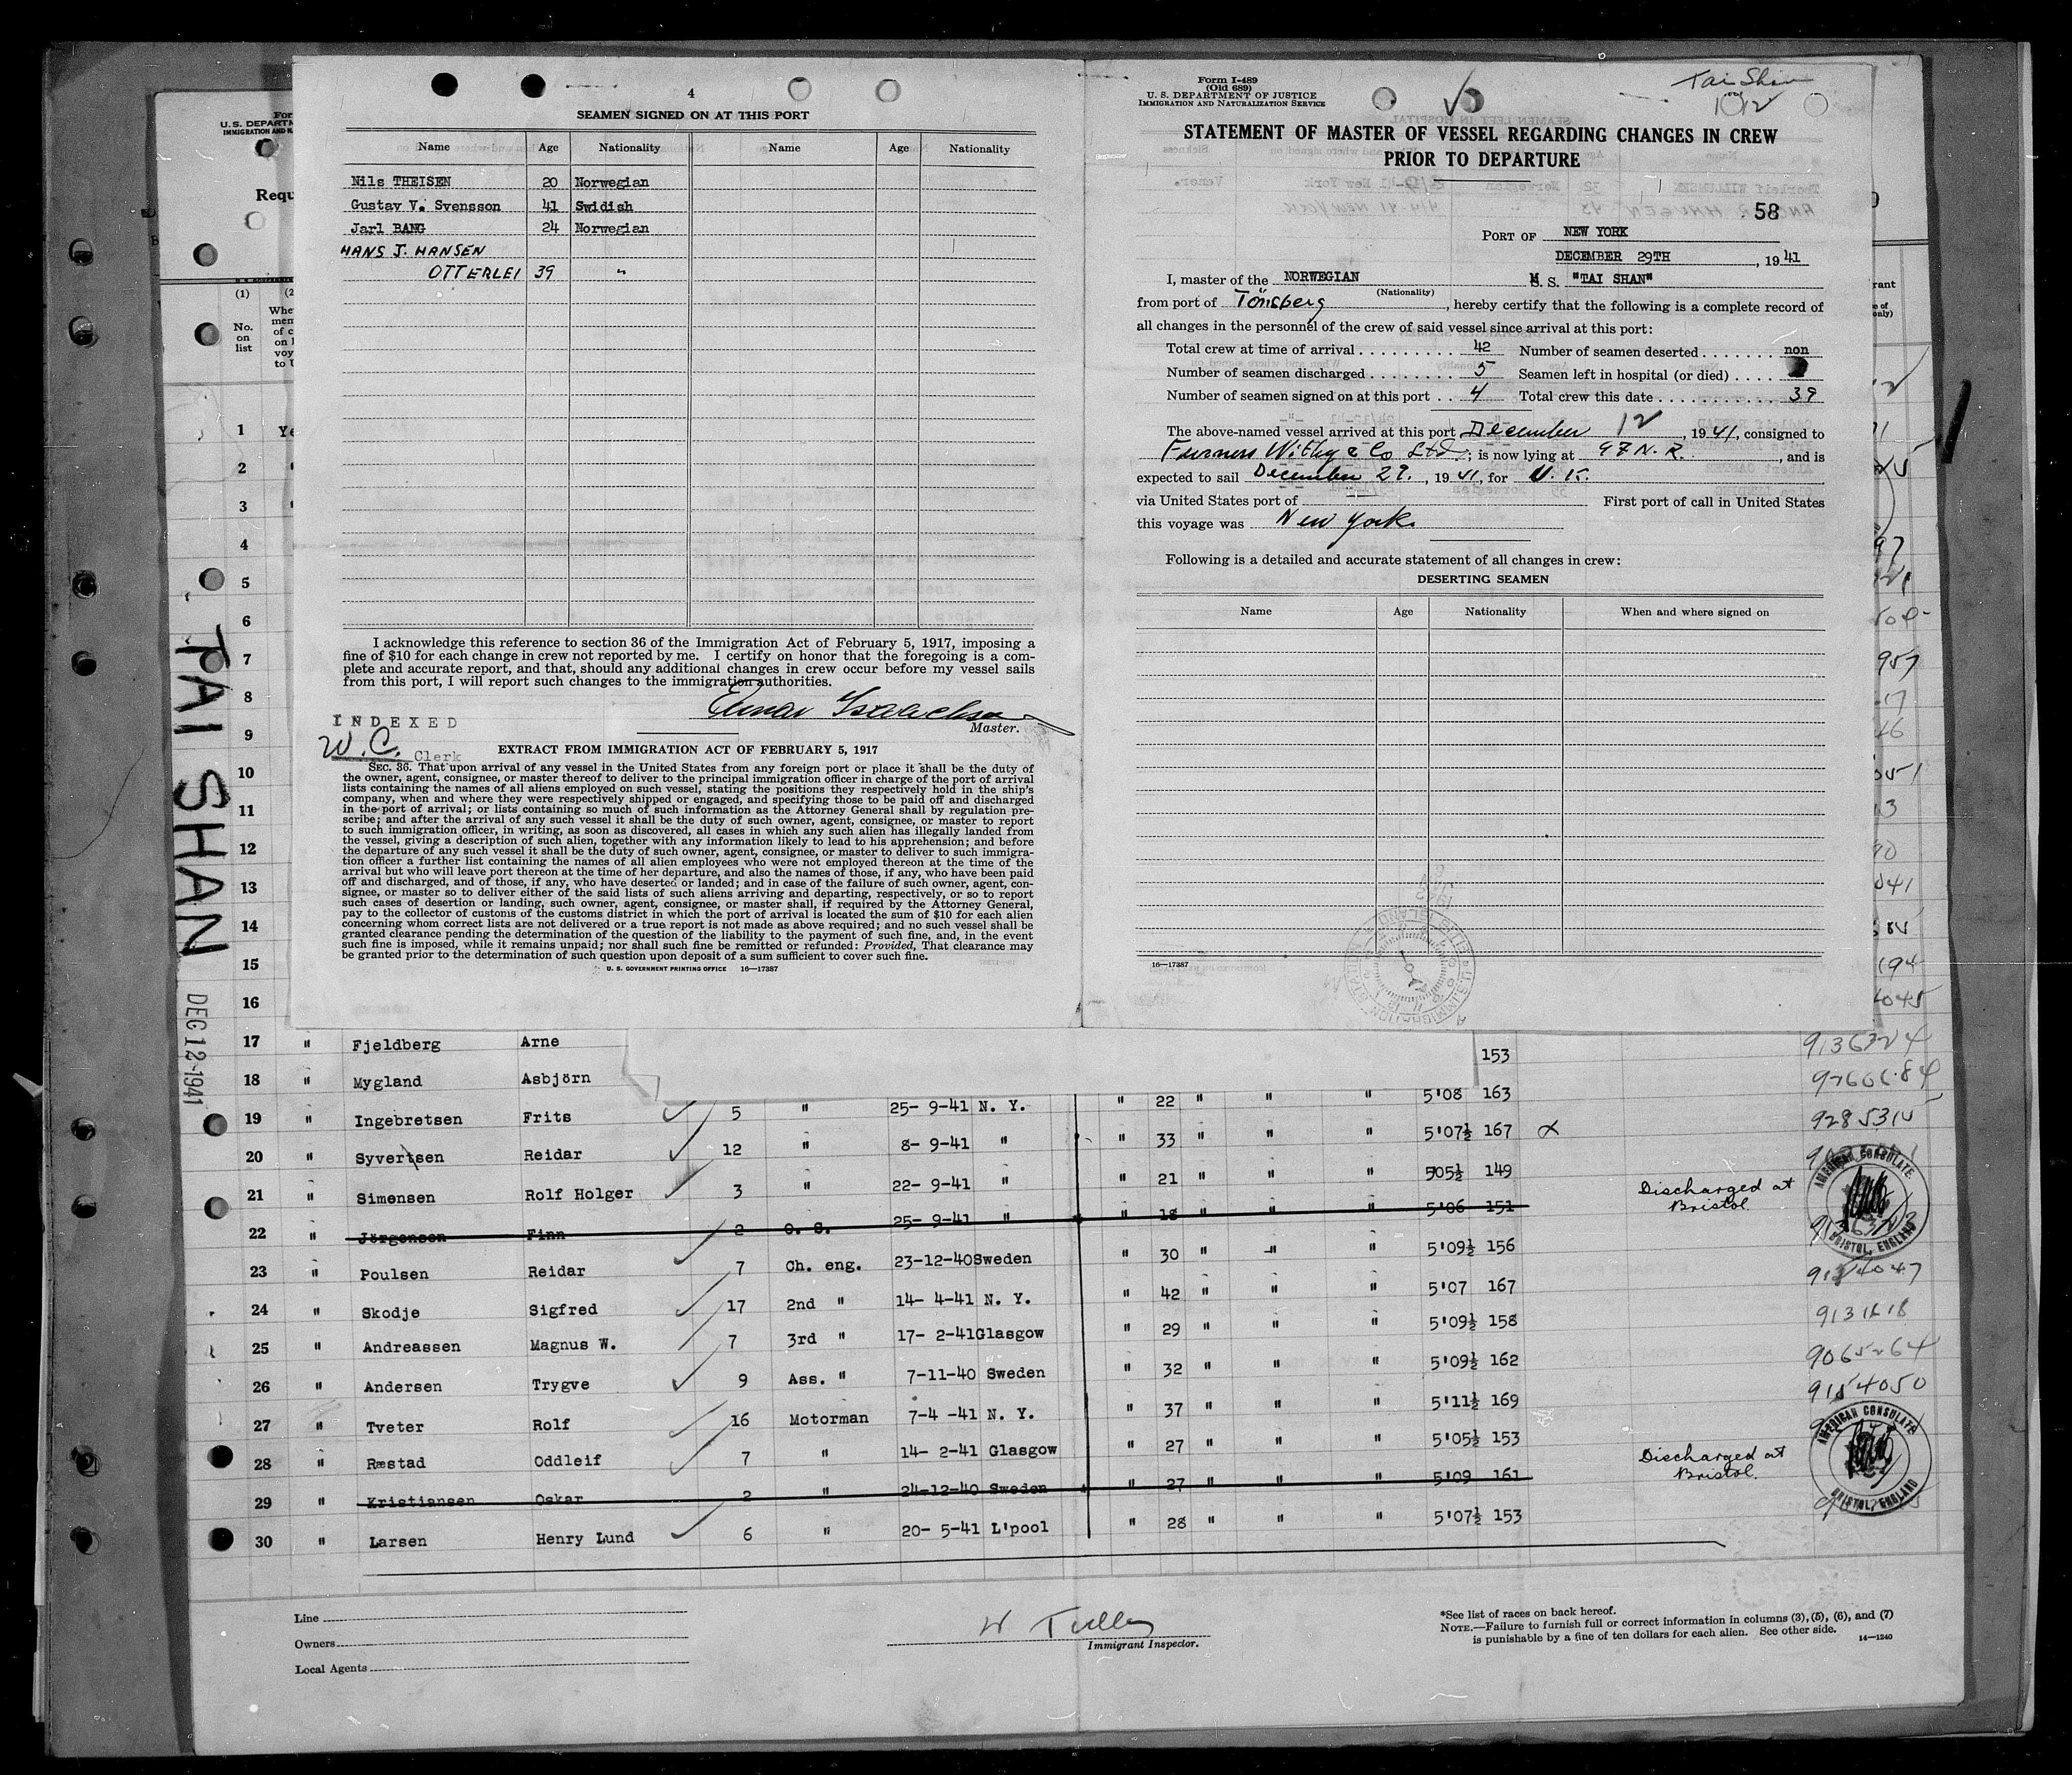 4
SEAMEN SIGNED ON AT THIS PORT
Name Age Nationality Name Age Nationality
Nils THEISEN 20 Norwegian
Gustav V. Svensson 41 Swidish
Jarl BANG 24 Norwegian
HANS J. HANSEN
OTTERLEI 39 "
I acknowledge this reference to section 36 of the Immigration Act of February 5, 1917, imposing a
fine of $10 for each change in crew not reported by me. I certify on honor that the foregoing is a com-
plete and accurate report, and that, should any additional changes in crew occur before my vessel sails
from this port, I will report such changes to the immigration authorities.
Master.
INDEXED
W. C. Clerk
EXTRACT FROM IMMIGRATION ACT OF FEBRUARY 5, 1917
SEC. 36. That upon arrival of any vessel in the United States from any foreign port or place it shall be the duty of
the owner, agent, consignee, or master thereof to deliver to the principal immigration officer in charge of the port of arrival
lists containing the names of all aliens employed on such vessel, stating the positions they respectively hold in the ship's
company, when and where they were respectively shipped or engaged, and specifying those to be paid off and discharged
in the port of arrival; or lists containing so much of such information as the Attorney General shall by regulation pre-
scribe; and after the arrival of any such vessel it shall be the duty of such owner, agent, consignee, or master to report
to such immigration officer, in writing, as soon as discovered, all cases in which any such alien has illegally landed from
the vessel, giving a description of such alien, together with any information likely to lead to his apprehension; and before
the departure of any such vessel it shall be the duty of such owner, agent, consignee, or master to deliver to such immigra-
tion officer a further list containing the names of all alien employees who were not employed thereon at the time of the
arrival but who will leave port thereon at the time of her departure, and also the names of those, if any, who have been paid
off and discharged, and of those, if any, who have deserted or landed; and in case of the failure of such owner, agent, con-
signee, or master so to deliver either of the said lists of such aliens arriving and departing, respectively, or so to report
such cases of desertion or landing, such owner, agent, consignee, or master shall, if required by the Attorney General,
pay to the collector of customs of the customs district in which the port of arrival is located the sum of $10 for each alien
concerning whom correct lists are not delivered or a true report is not made as above required; and no such vessel shall be
granted clearance pending the determination of the question of the liability to the payment of such fine, and, in the event
such fine is imposed, while it remains unpaid; nor shall such fine be remitted or refunded: Provided, That clearance may
be granted prior to the determination of such question upon deposit of a sum sufficient to cover such fine.
U. S. GOVERNMENT PRINTING OFFICE 16—17387
Form I-489
(Old 689)
U. S. DEPARTMENT OF JUSTICE
IMMIGRATION AND NATURALIZATION SERVICE
Tai Shan
12
STATEMENT OF MASTER OF VESSEL REGARDING CHANGES IN CREW
PRIOR TO DEPARTURE
58
PORT OF NEW YORK
DECEMBER 29TH, 1941
I, master of the NORWEGIAN M. S. "TAI SHAN"
(Nationality)
from port of Tönsberg, hereby certify that the following is a complete record of
all changes in the personnel of the crew of said vessel since arrival at this port:
Total crew at time of arrival 42 Number of seamen deserted non
Number of seamen discharged 5 Seamen left in hospital (or died)
Number of seamen signed on at this port 4 Total crew this date 39
The above-named vessel arrived at this port December 12, 1941, consigned to
Furness Withy & Co Ltd.; is now lying at 97 N. R., and is
expected to sail December 29., 1941, for U. K.
via United States port of First port of call in United States
this voyage was New York.
Following is a detailed and accurate statement of all changes in crew:
DESERTING SEAMEN
Name Age Nationality When and where signed on
16—17387
TAI SHAN
DEC 12 1941
U. S. DEPARTM
IMMIGRATION AND N
Requ
(1)
No.
on
list
1 Ye
2 "
3 "
4
5
6
7
8
9
10
11
12
13
14
15
16
17 " Fjeldberg Arne 153 9136724
18 " Mygland Asbjörn 5'08 163
19 " Ingebretsen Frits 5 " 25- 9-41 N. Y. " 22 " " " 5'08 163 9285315
20 " Syvertsen Reidar 12 " 8- 9-41 " " 33 " " " 5'07½ 167
21 " Simensen Rolf Holger 3 " 22- 9-41 " " 21 " " " 505½ 149
22 " Jörgensen Finn 2 O. S. 25- 9-41 " " 18 " " " 5'06 151 Discharged at Bristol.
23 " Poulsen Reidar 7 Ch. eng. 23-12-40 Sweden " 30 " " " 5'09½ 156
24 " Skodje Sigfred 17 2nd " 14- 4-41 N. Y. " 42 " " " 5'07 167
25 " Andreassen Magnus W. 7 3rd " 17- 2-41 Glasgow " 29 " " " 5'09½ 158
26 " Andersen Trygve 9 Ass. " 7-11-40 Sweden " 32 " " " 5'09½ 162
27 " Tveter Rolf 16 Motorman 7-4 -41 N. Y. " 37 " " " 5'11½ 169
28 " Ræstad Oddleif 7 " 14- 2-41 Glasgow " 27 " " " 5'05½ 153
29 " Kristiansen Oskar 2 " 24-12-40 Sweden " 27 " " " 5'09 161 Discharged at Bristol.
30 " Larsen Henry Lund 6 " 20- 5-41 L'pool " 28 " " " 5'07½ 153
AMERICAN CONSULATE
BRISTOL, ENGLAND
AMERICAN CONSULATE
BRISTOL, ENGLAND
Line
Owners
Local Agents
Immigrant Inspector.
*See list of races on back hereof.
NOTE.—Failure to furnish full or correct information in columns (3), (5), (6), and (7)
is punishable by a fine of ten dollars for each alien. See other side.
14—1240